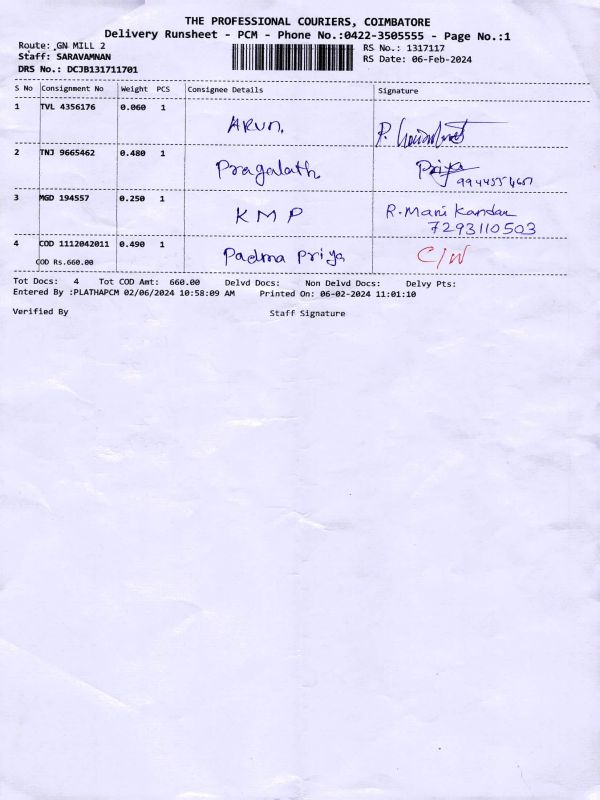 THE PROFESSIONAL COURIERS, COIMBATORE
Delivery Runsheet - PCM - Phone No.:0422-3505555 - Page No.:1
Route: GN MILL 2
RS No.: 1317117
Staff: SARAVAMNAN
RS Date: 06-Feb-2024
DRS No.: DCJB131711701
S No Consignment No Weight PCS Consignee Details Signature
1 TVL 4356176 0.060 1 Arun. P.
2 TNJ 9665462 0.480 1 Pragalath Priya
3 MGD 194557 0.250 1 KMP R.Mani Kandan
7293110503
4 COD 1112042011 0.490 1 Padma Priya C/W
COD Rs.660.00
Tot Docs: 4 Tot COD Amt: 660.00 Delvd Docs: Non Delvd Docs: Delvy Pts:
Entered By :PLATHAPCM 02/06/2024 10:58:09 AM Printed On: 06-02-2024 11:01:10
Verified By Staff Signature